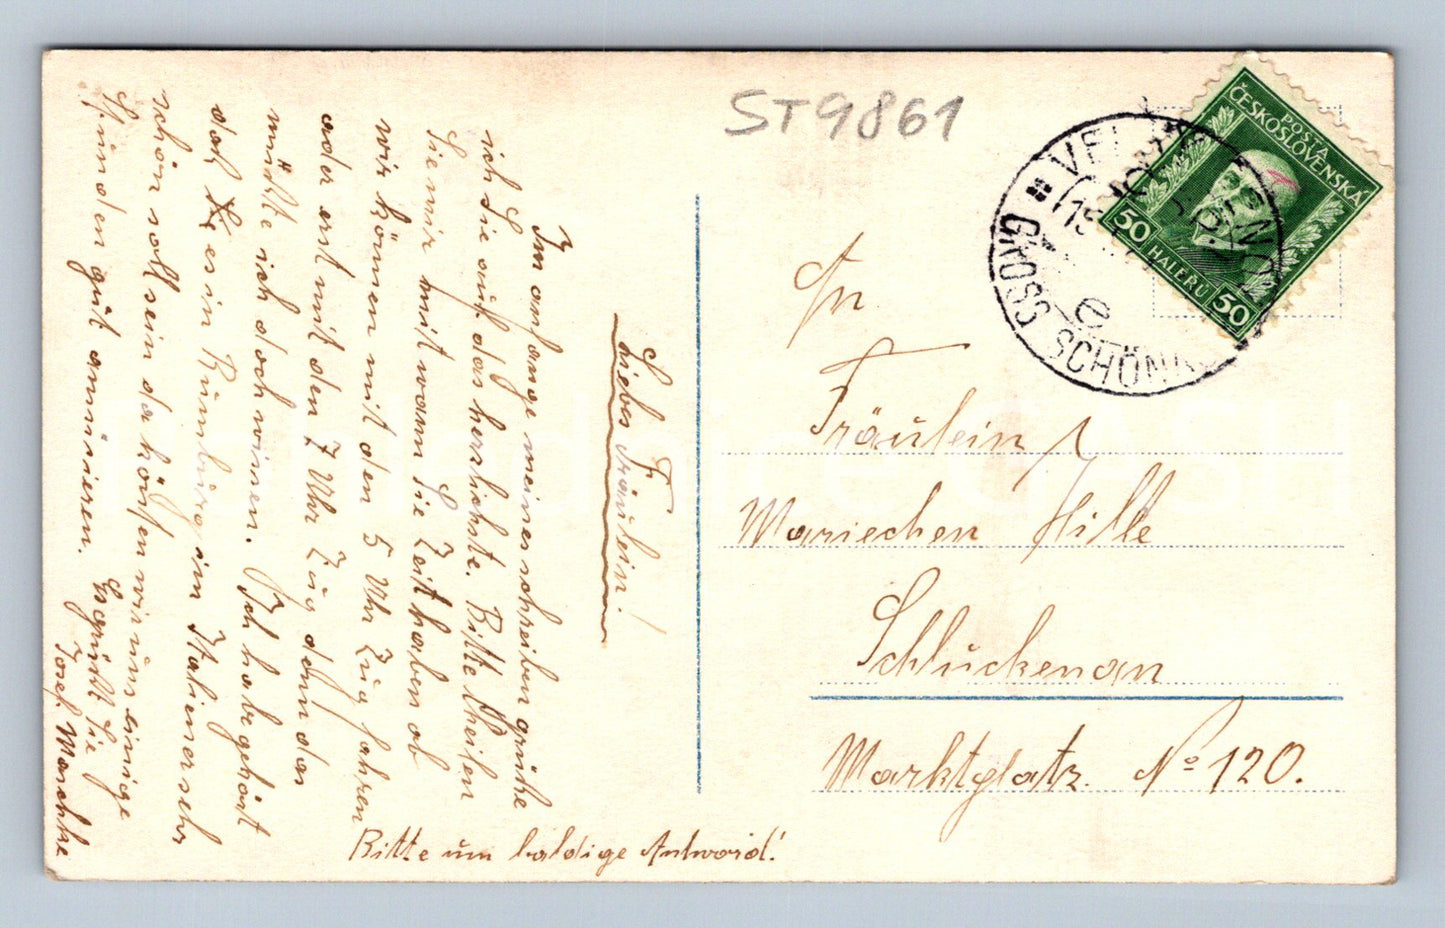 ST9861
POSTA
ČESKOSLOVENSKÁ
50 HALERŮ 50
GROSS SCHÖN
e
An
Fräulein
Mariechen Hille
Schluckenan
Marktplatz. No 120.
Liebes Fräulein!
Im anfange meines schreiben grüße
ich Sie auf das herlichste. Bitte theilen
Sie mir mit wann Sie Zeit haben ob
wir können mit den 5 Uhr Zug fahren
oder erst mit den 7 Uhr Zug denn das
müßte ich doch wissen. Ich habe gehört
daß es in Rumburg im Italiener sehr
schön soll sein da könten wir uns einige
Stunden gut amüsieren. Es grüßt Sie
Josef Maschke
Bitte um baldige Antword!